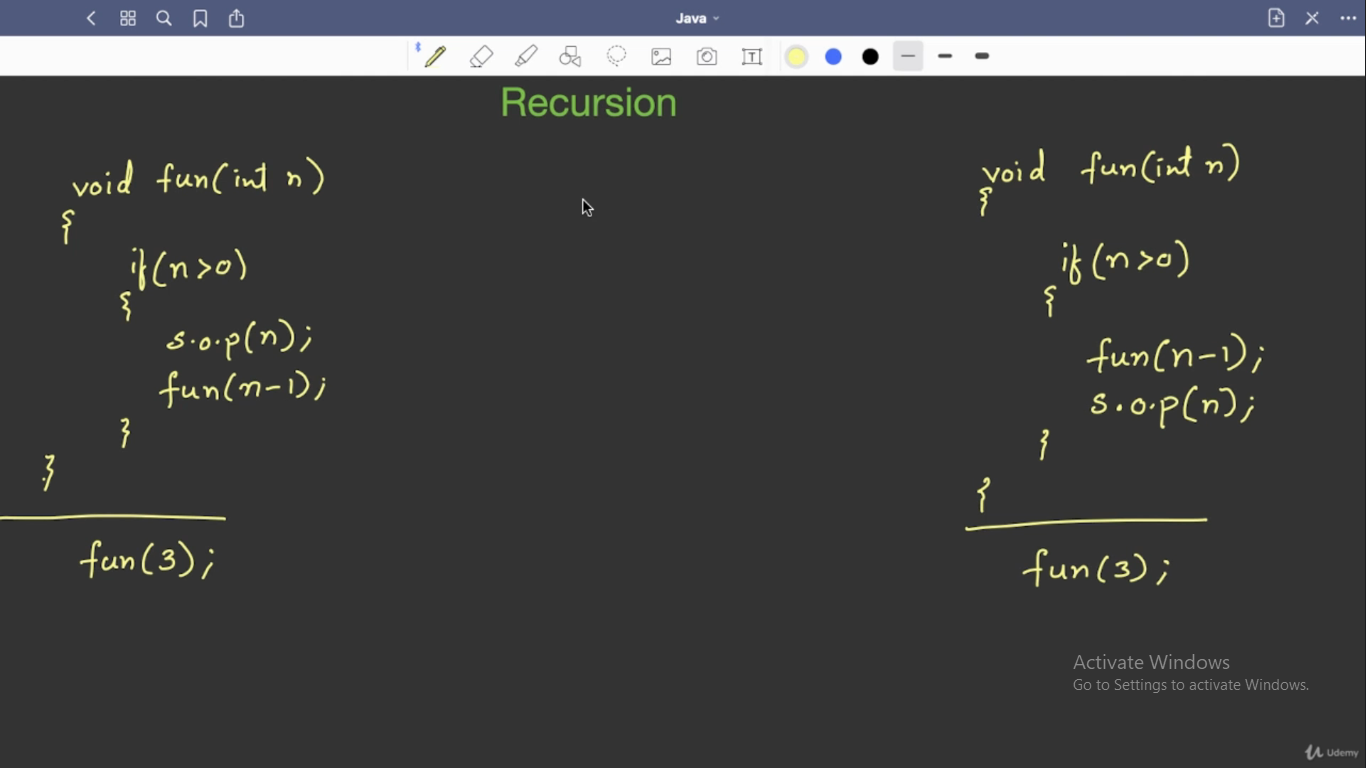 Java
T
Recursion
void fun(int n)
{
if(n>0)
{
s.o.p(n);
fun(n-1);
}
}
fun(3);
void fun(int n)
{
if(n>0)
{
fun(n-1);
s.o.p(n);
}
{
fun(3);
Activate Windows
Go to Settings to activate Windows.
Udemy